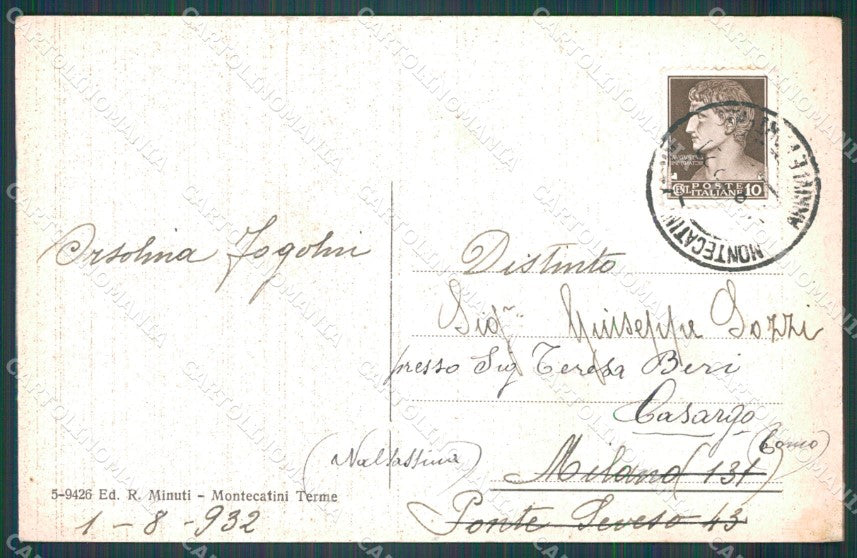 POSTE
ITALIANE
10
MONTECATINI
Orsolina Fogolni
Distinto
Sig.re Giuseppe Pozzi
presso Sig Teresa Beri
Casargo
(Valsassina)
(Como)
Milano (131)
Ponte Seveso 43
5-9426 Ed. R. Minuti - Montecatini Terme
1-8-932
CARTOLINOMANIA